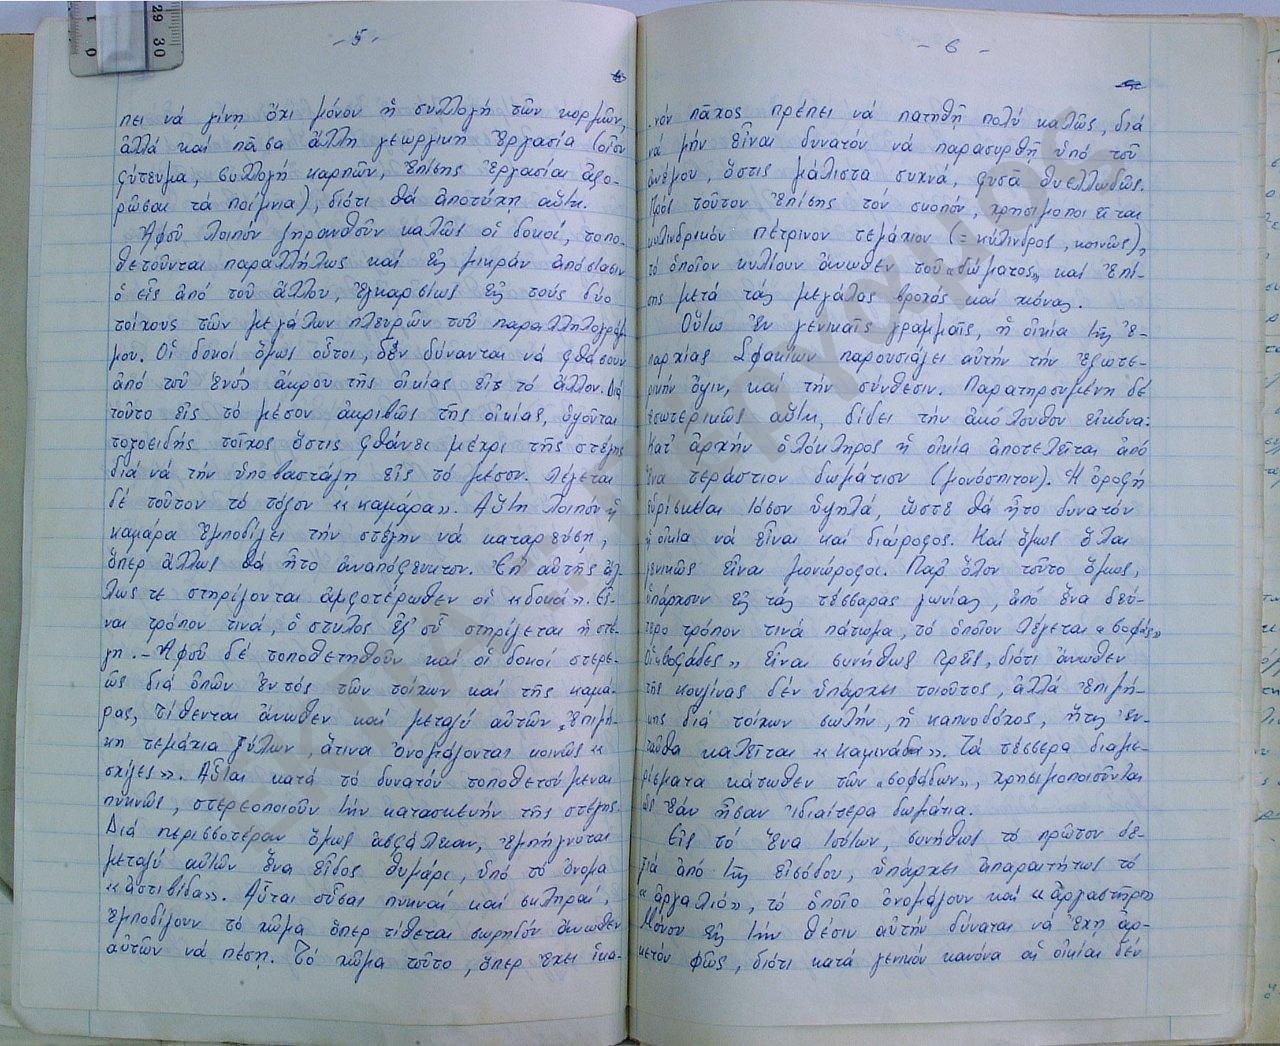 - 5 -
πει νά γίνῃ ὄχι μόνον ἡ συλλογή τῶν κορμῶν,
ἀλλά καί πᾶσα ἄλλη γεωργική ἐργασία (οἷον
φύτευμα, συλλογή καρπῶν, ἐπίσης ἐργασίαι ἀφο-
ρῶσαι τά ποίμνια), διότι θά ἀποτύχῃ αὕτη.
Ἀφοῦ λοιπόν ξηρανθοῦν καλῶς οἱ δοκοί, τοπο-
θετοῦνται παραλλήλως καί εἰς μικράν ἀπόστασιν
ὁ εἷς ἀπό τοῦ ἄλλου, ἐγκαρσίως εἰς τούς δύο
τοίχους τῶν μεγάλων πλευρῶν τοῦ παραλληλογράμ-
μου. Οἱ δοκοί ὅμως οὗτοι, δέν δύνανται νά φθάσουν
ἀπό τοῦ ἑνός ἄκρου τῆς οἰκίας εἰς τό ἄλλον. Διά
τοῦτο εἰς τό μέσον ἀκριβῶς τῆς οἰκίας, ὑψοῦται
τοξοειδής τοῖχος ὅστις φθάνει μέχρι τῆς στέγης
διά νά τήν ὑποβαστάζῃ εἰς τό μέσον. Λέγεται
δέ τοῦτον τό τόξον «καμάρα». Αὕτη λοιπόν ἡ
καμάρα ἐμποδίζει τήν στέγην νά καταρεύσῃ,
ὅπερ ἄλλως θά ἦτο ἀναπόφευκτον. Ἐπ' αὐτῆς ἄλ-
λως τε στηρίζονται ἀμφοτέρωθεν οἱ «δοκοί». Εἶ-
ναι τρόπον τινά, ὁ στῦλος ἐφ' οὗ στηρίζεται ἡ στέ-
γη. - Ἀφοῦ δέ τοποθετηθοῦν καί οἱ δοκοί στερε-
ῶς διά ὀπῶν ἐντός τῶν τοίχων καί τῆς καμά-
ρας, τίθενται ἄνωθεν καί μεταξύ αὐτῶν, ἐπιμή-
κη τεμάχια ξύλων, ἅτινα ὀνομάζονται κοινῶς «
σχίζες». Αὗται κατά τό δυνατόν τοποθετούμεναι
πυκνῶς, στερεοποιοῦν τήν κατασκευήν τῆς στέγης.
Διά περισσοτέραν ὅμως ἀσφάλειαν, ἐμπήγνυται
μεταξύ αὐτῶν ἕνα εἶδος θυμάρι, ὑπό τό ὄνομα
«ἀστιβίδα». Αὗται οὖσαι πυκναί καί σκληραί,
ἐμποδίζουν τό χῶμα ὅπερ τίθεται σωρηδόν ἄνωθεν
αὐτῶν νά πέσῃ. Τό χῶμα τοῦτο, ὅπερ ἔχει ἱκα-
- 6 -
νόν πάχος πρέπει νά πατηθῇ πολύ καλῶς, διά
νά μήν εἶναι δυνατόν νά παρασυρθῇ ὑπό τοῦ
ἀνέμου, ὅστις μάλιστα συχνά, φυσᾶ θυελλωδῶς.
Πρός τοῦτον ἐπίσης τόν σκοπόν, χρησιμοποιεῖται
κυλινδρικόν πέτρινον τεμάχιον (= κύλινδρος, κοινῶς),
τό ὁποῖον κυλίουν ἄνωθεν τοῦ «δώματος» καί ἐπί-
σης μετά τάς μεγάλας βροχάς καί χιόνας.
Οὕτω ἐν γενικαῖς γραμμαῖς, ἡ οἰκία τῆς ἐ-
παρχίας Σφακίων παρουσιάζει αὐτήν τήν ἐξωτε-
ρικήν ὄψιν, καί τήν σύνθεσιν. Παρατηρουμένη δέ
ἐσωτερικῶς αὕτη, δίδει τήν ἀκόλουθον εἰκόνα:
Κατ' ἀρχήν ὁλόκληρος ἡ οἰκία ἀποτελεῖται ἀπό
ἕνα τεράστιον δωμάτιον (μονόσπιτον). Ἡ ὀροφή
εὑρίσκεται τόσον ὑψηλά, ὥστε θά ἦτο δυνατόν
ἡ οἰκία νά εἶναι καί διώροφος. Καί ὅμως ὅλαι
γενικῶς εἶναι μονώροφοι. Παρ' ὅλον τοῦτο ὅμως,
ὑπάρχουν εἰς τάς τέσσαρας γωνίας, ἀπό ἕνα δεύ-
τερο τρόπον τινά πάτωμα, τό ὁποῖον λέγεται «σοφᾶς»
Οἱ «σοφάδες» εἶναι συνήθως τρεῖς, διότι ἄνωθεν
τῆς κουζίνας δέν ὑπάρχει τοιοῦτος, ἀλλά ἐπιμή-
κης διά τοίχων σωλήν, ἡ καπνοδόχος, ἥτις ἐν-
ταῦθα καλεῖται «καμινάδα». Τά τέσσερα διαμε-
ρίσματα κάτωθεν τῶν «σοφάδων», χρησιμοποιοῦνται
ὡς ἐάν ἦσαν ἰδιαίτερα δωμάτια.
Εἰς τό ἕνα τούτων, συνήθως τό πρῶτον δε-
ξιά ἀπό τῆς εἰσόδου, ὑπάρχει ἀπαραιτήτως τό
«ἀργαλιό», τό ὁποῖο ὀνομάζουν καί «ἀργαστήρι»
Μόνον εἰς τήν θέσιν αὐτήν δύναται νά ἔχῃ ἀρ-
κετόν φῶς, διότι κατά γενικόν κανόνα αἱ οἰκίαι δέν